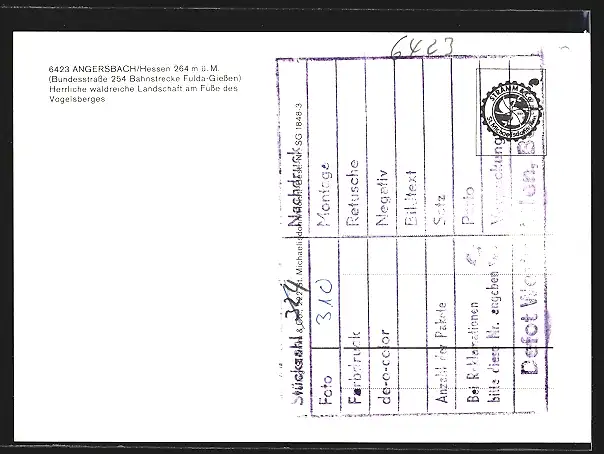 6423 ANGERSBACH/Hessen 264 m ü. M.
(Bundesstraße 254 Bahnstrecke Fulda-Gießen)
Herrliche waldreiche Landschaft am Fuße des
Vogelsberges
6423
STRAMM & Co.
St. Michaelisdonn
SG 1848-3
Stückzahl
Nachdruck
Foto 310
Montage
Farbdruck
Retusche
de-o-color
Negativ
Bildtext
Anzahl der Pakete
Satz
Bei Reklamationen
Porto
bitte diese Nr. angeben
Verpackung
Defot